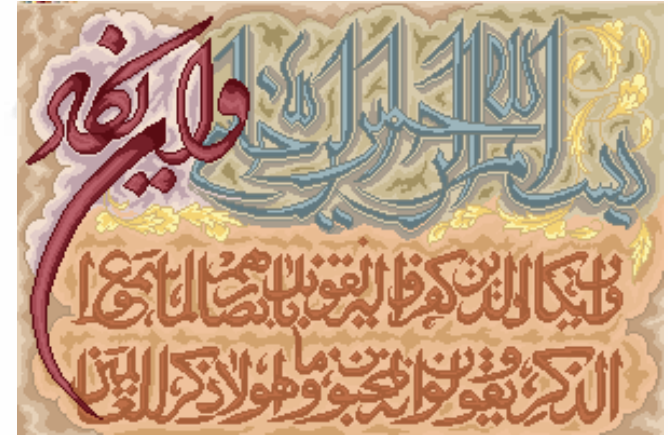 بسم الله الرحمن الرحیم
وان یکاد
وان یکاد الذین کفروا لیزلقونک بابصارهم لما سمعوا
الذکر و یقولون انه لمجنون و ما هو الا ذکر للعالمین